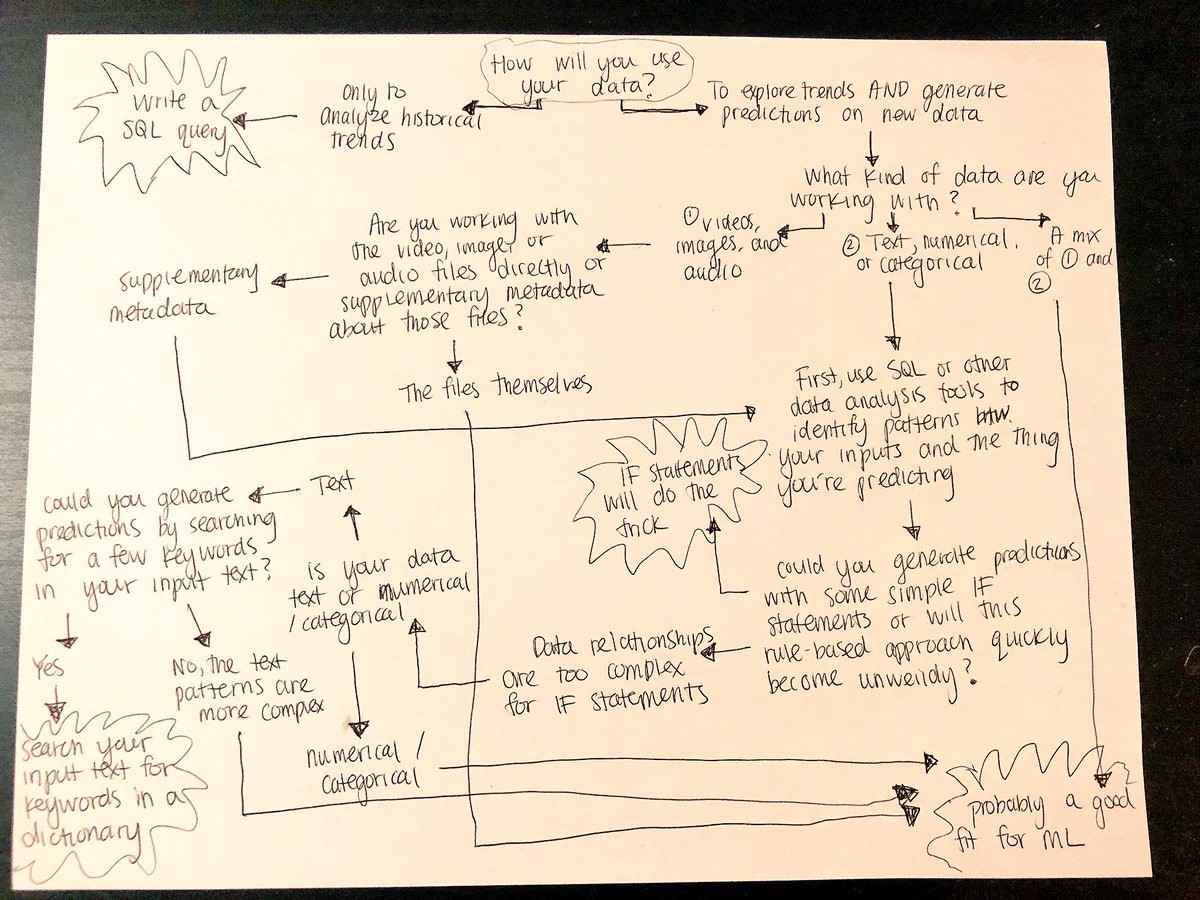 How will you use
your data?
Only to
analyze historical
trends
Write a
SQL query
To explore trends AND generate
predictions on new data
What kind of data are you
working with?
① videos,
images, and
audio
② Text, numerical,
or categorical
A mix
of ① and
②
Are you working with
the video, image, or
audio files directly or
supplementary metadata
about those files?
supplementary
metadata
The files themselves
First, use SQL or other
data analysis tools to
identify patterns btw.
your inputs and the thing
you're predicting
IF statements
will do the
trick
could you generate predictions
with some simple IF
statements or will this
rule-based approach quickly
become unweildy?
Data relationships
are too complex
for IF statements
is your data
text or numerical
/categorical
Text
could you generate
predictions by searching
for a few keywords
in your input text?
Yes
No, the text
patterns are
more complex
search your
input text for
keywords in a
dictionary
numerical /
categorical
probably a good
fit for ML